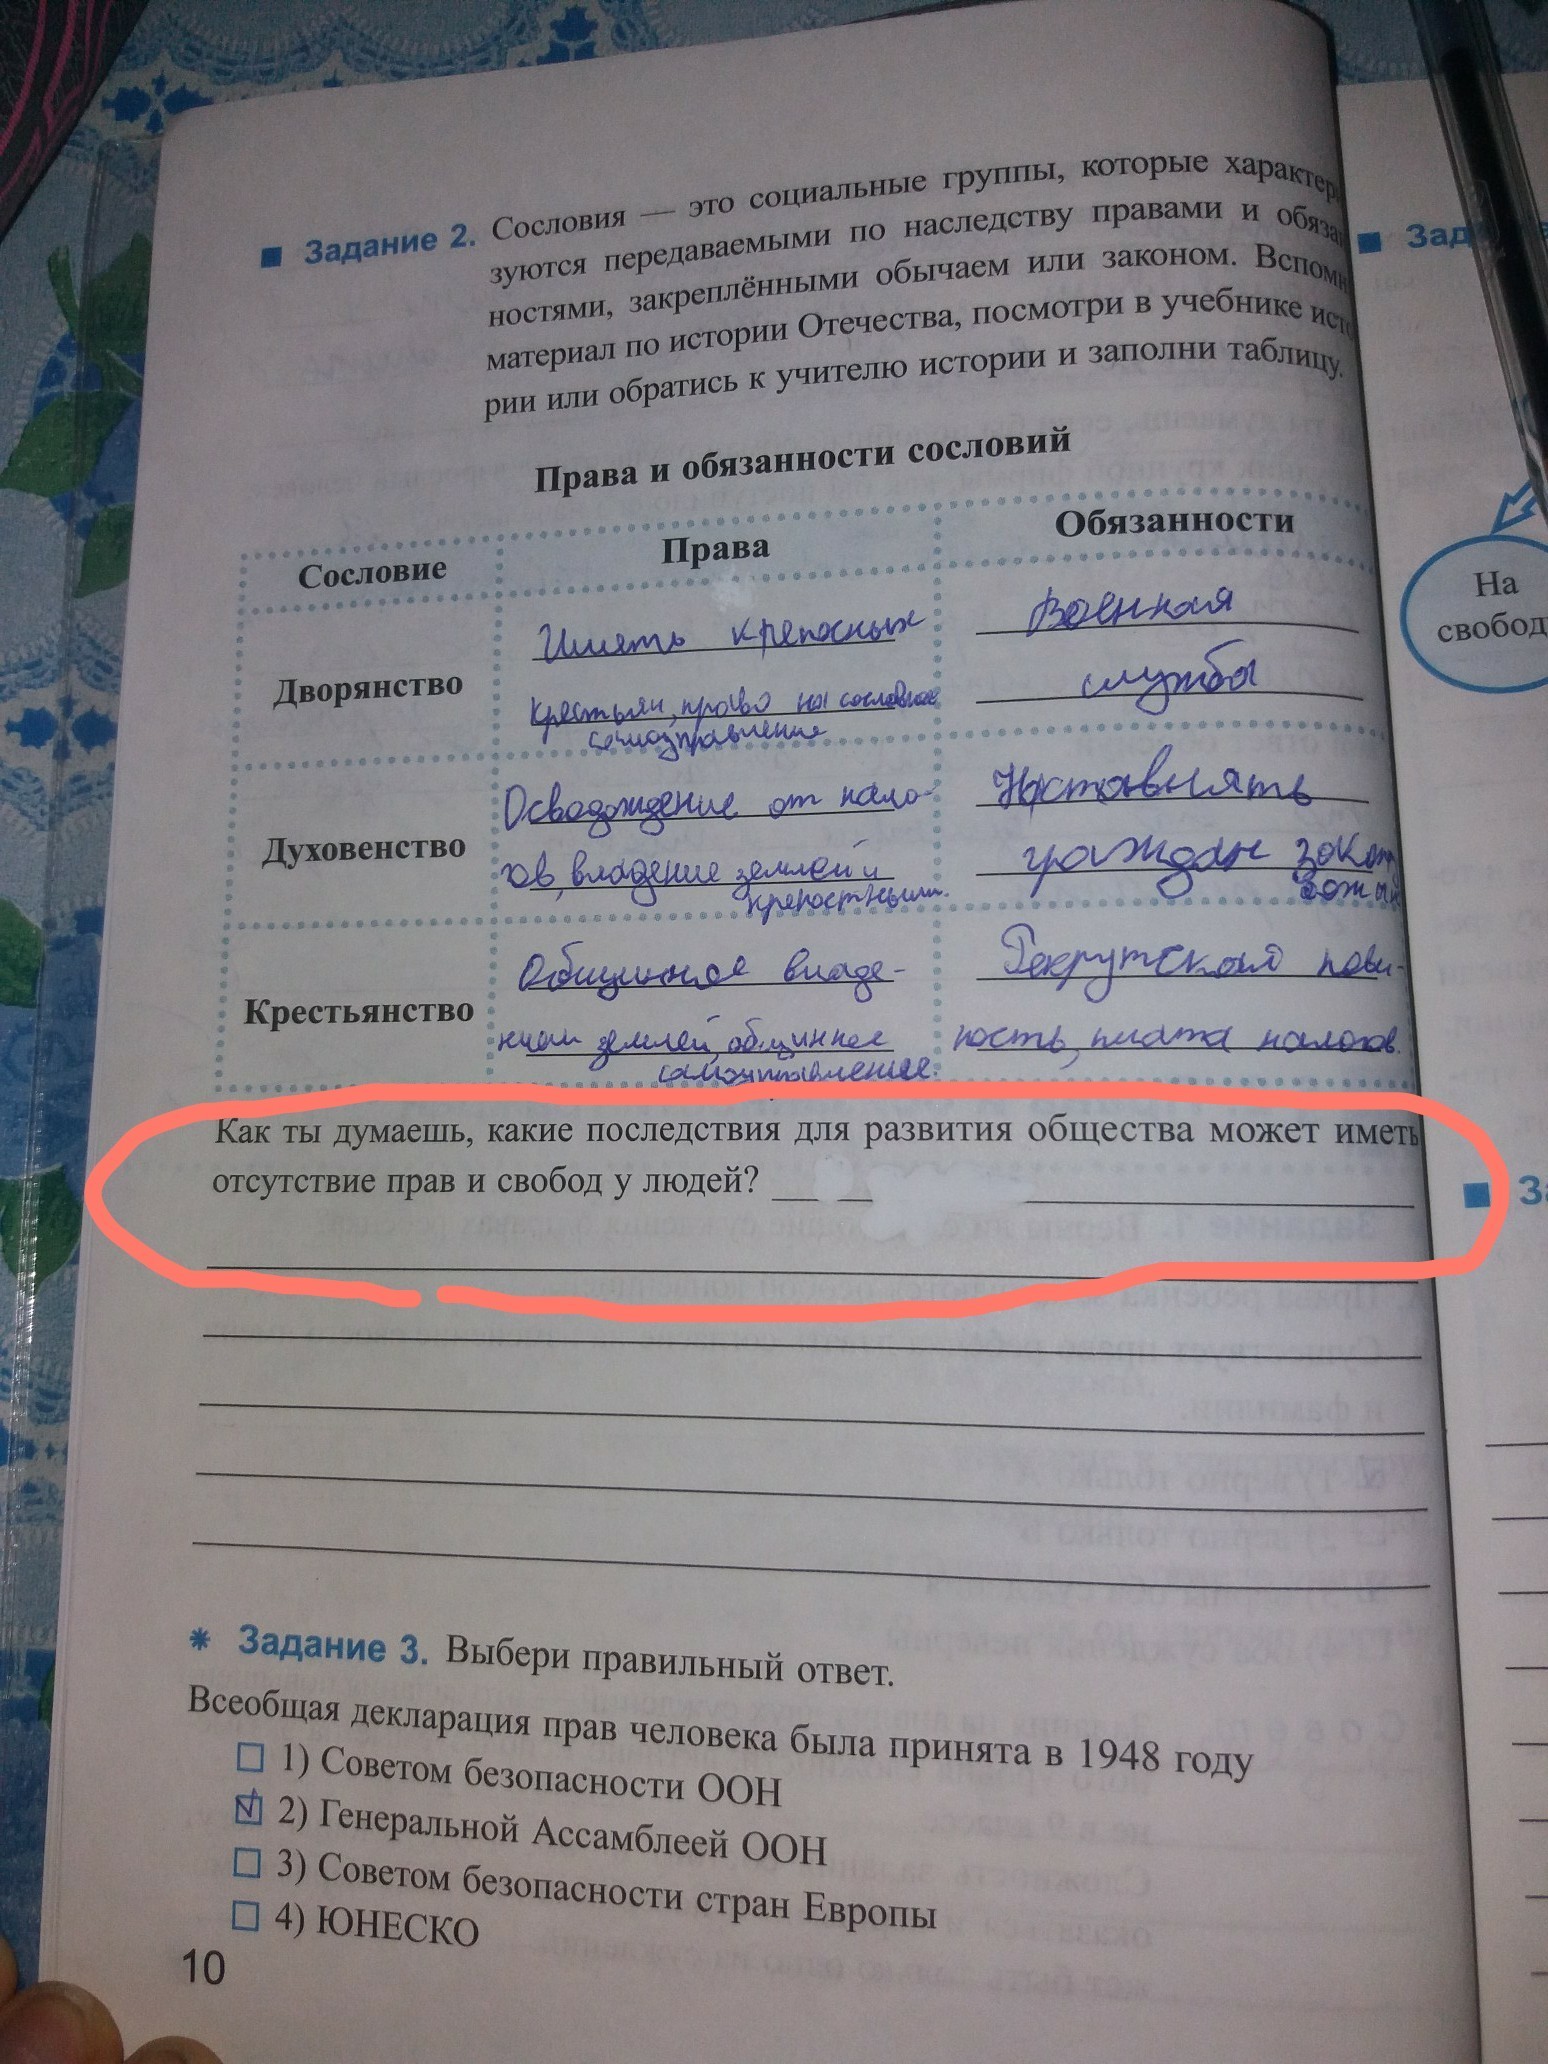 ■ Задание 2. Сословия — это социальные группы, которые характери
зуются передаваемыми по наследству правами и обязан
ностями, закреплёнными обычаем или законом. Вспомни
материал по истории Отечества, посмотри в учебнике исто
рии или обратись к учителю истории и заполни таблицу.
Права и обязанности сословий
Сословие Права Обязанности
Дворянство
Иметь крепосных
крестьян, право на сословное
самоуправление
Военная
служба
Духовенство
Освобождение от нало-
гов, владение землей и
крепостными.
Наставлять
граждан закону
божьи
Крестьянство
Общинное владе-
нием землей, общинное
самоуправление.
Рекрутская пови-
ность, плата налогов.
Как ты думаешь, какие последствия для развития общества может иметь
отсутствие прав и свобод у людей?
* Задание 3. Выбери правильный ответ.
Всеобщая декларация прав человека была принята в 1948 году
1) Советом безопасности ООН
2) Генеральной Ассамблеей ООН
3) Советом безопасности стран Европы
4) ЮНЕСКО
10
■ Зад
На
свобод
■ За